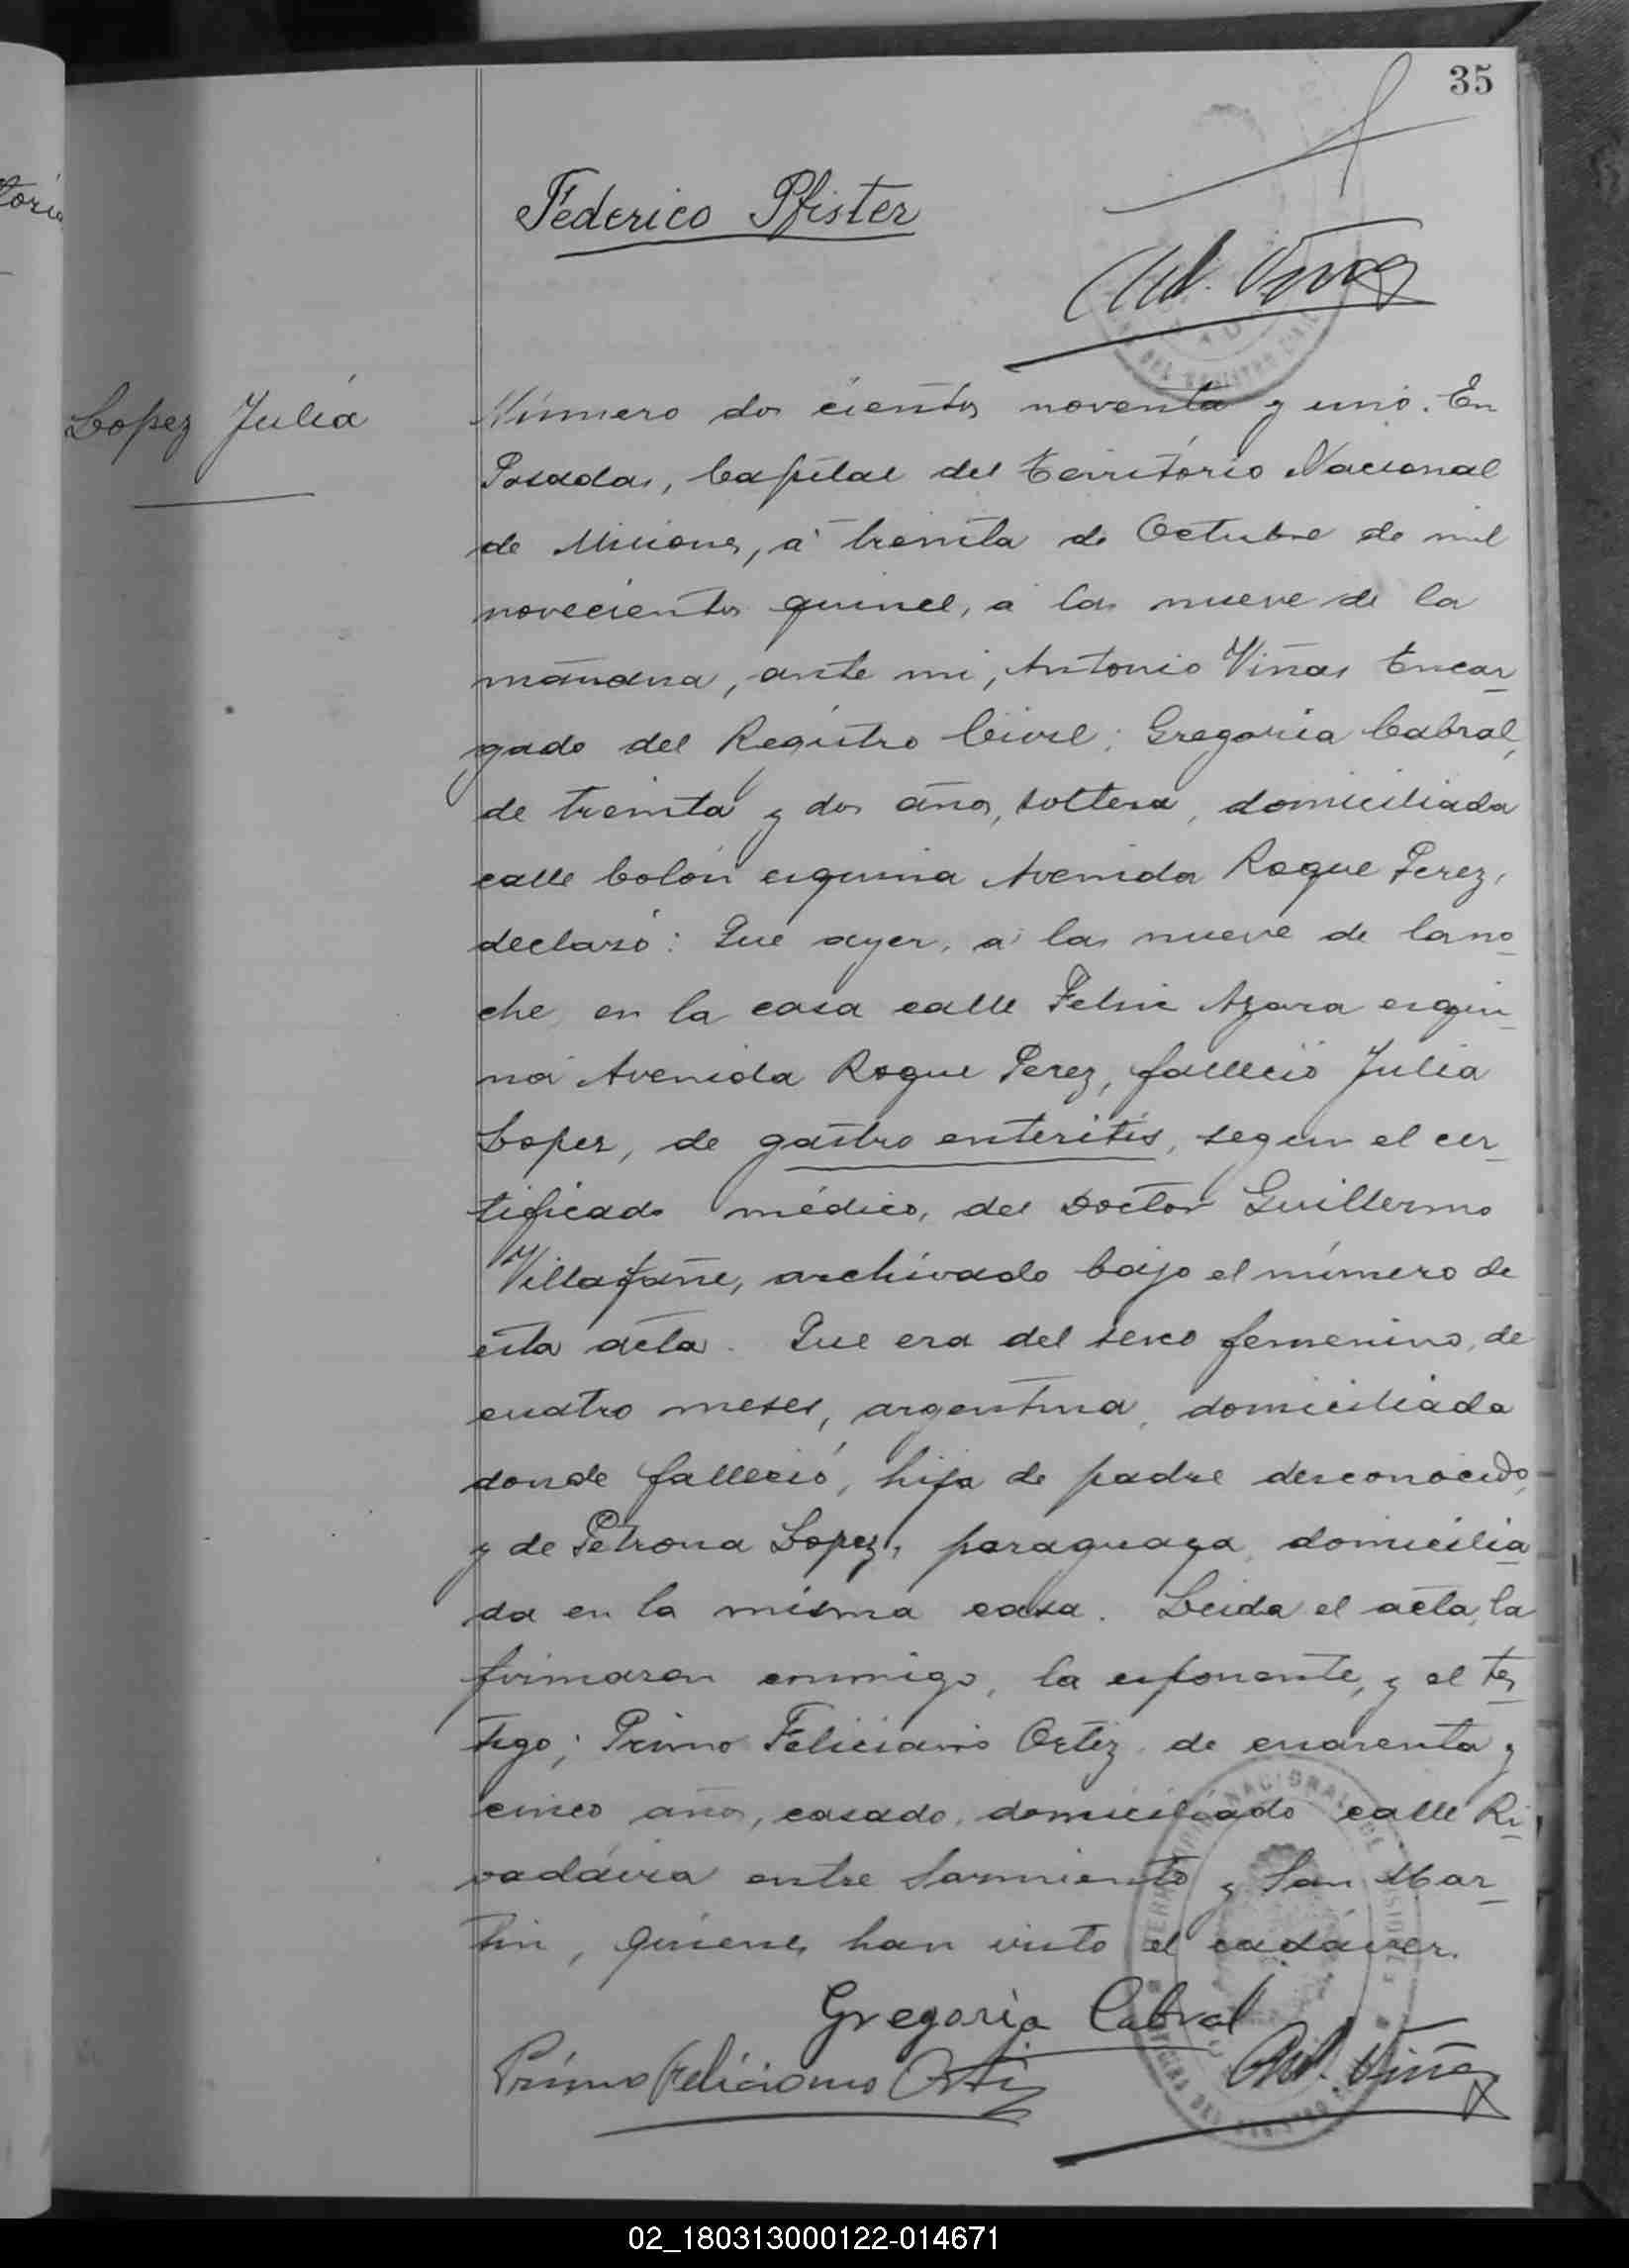 35
Federico Pfister
Ant. Viñas
Lopez Julia
Número dos cientos noventa y uno. En
Posadas, Capital del Territorio Nacional
de Misiones, á treinta de Octubre de mil
novecientos quince, á las nueve de la
mañana, ante mi, Antonio Viñas Encar
gado del Registro Civil; Gregoria Cabral,
de treinta y dos años, soltera, domiciliada
calle Colón esquina Avenida Roque Perez,
declaró: Que ayer, á las nueve de la no
che, en la casa calle Felix Azara esqui
na Avenida Roque Perez, falleció Julia
Lopez, de gastro enteritis, segun el cer
tificado médico, del Doctor Guillermo
Villafañe, archivado bajo el número de
esta acta. Que era del sexo femenino, de
cuatro meses, argentina, domiciliada
donde falleció, hija de padre desconocido,
y de Petrona Lopez, paraguaya, domicilia
da en la misma casa. Leida el acta, la
firmaron conmigo, la exponente, y el tes
tigo; Primo Feliciano Ortiz, de cuarenta y
cinco años, casado, domiciliado calle Ri
vadavia entre Sarmiento y San Mar
tin, quienes han visto el cadáver.
Gregoria Cabral
Primo Feliciano Ortiz
Ant. Viñas
02_180313000122-014671